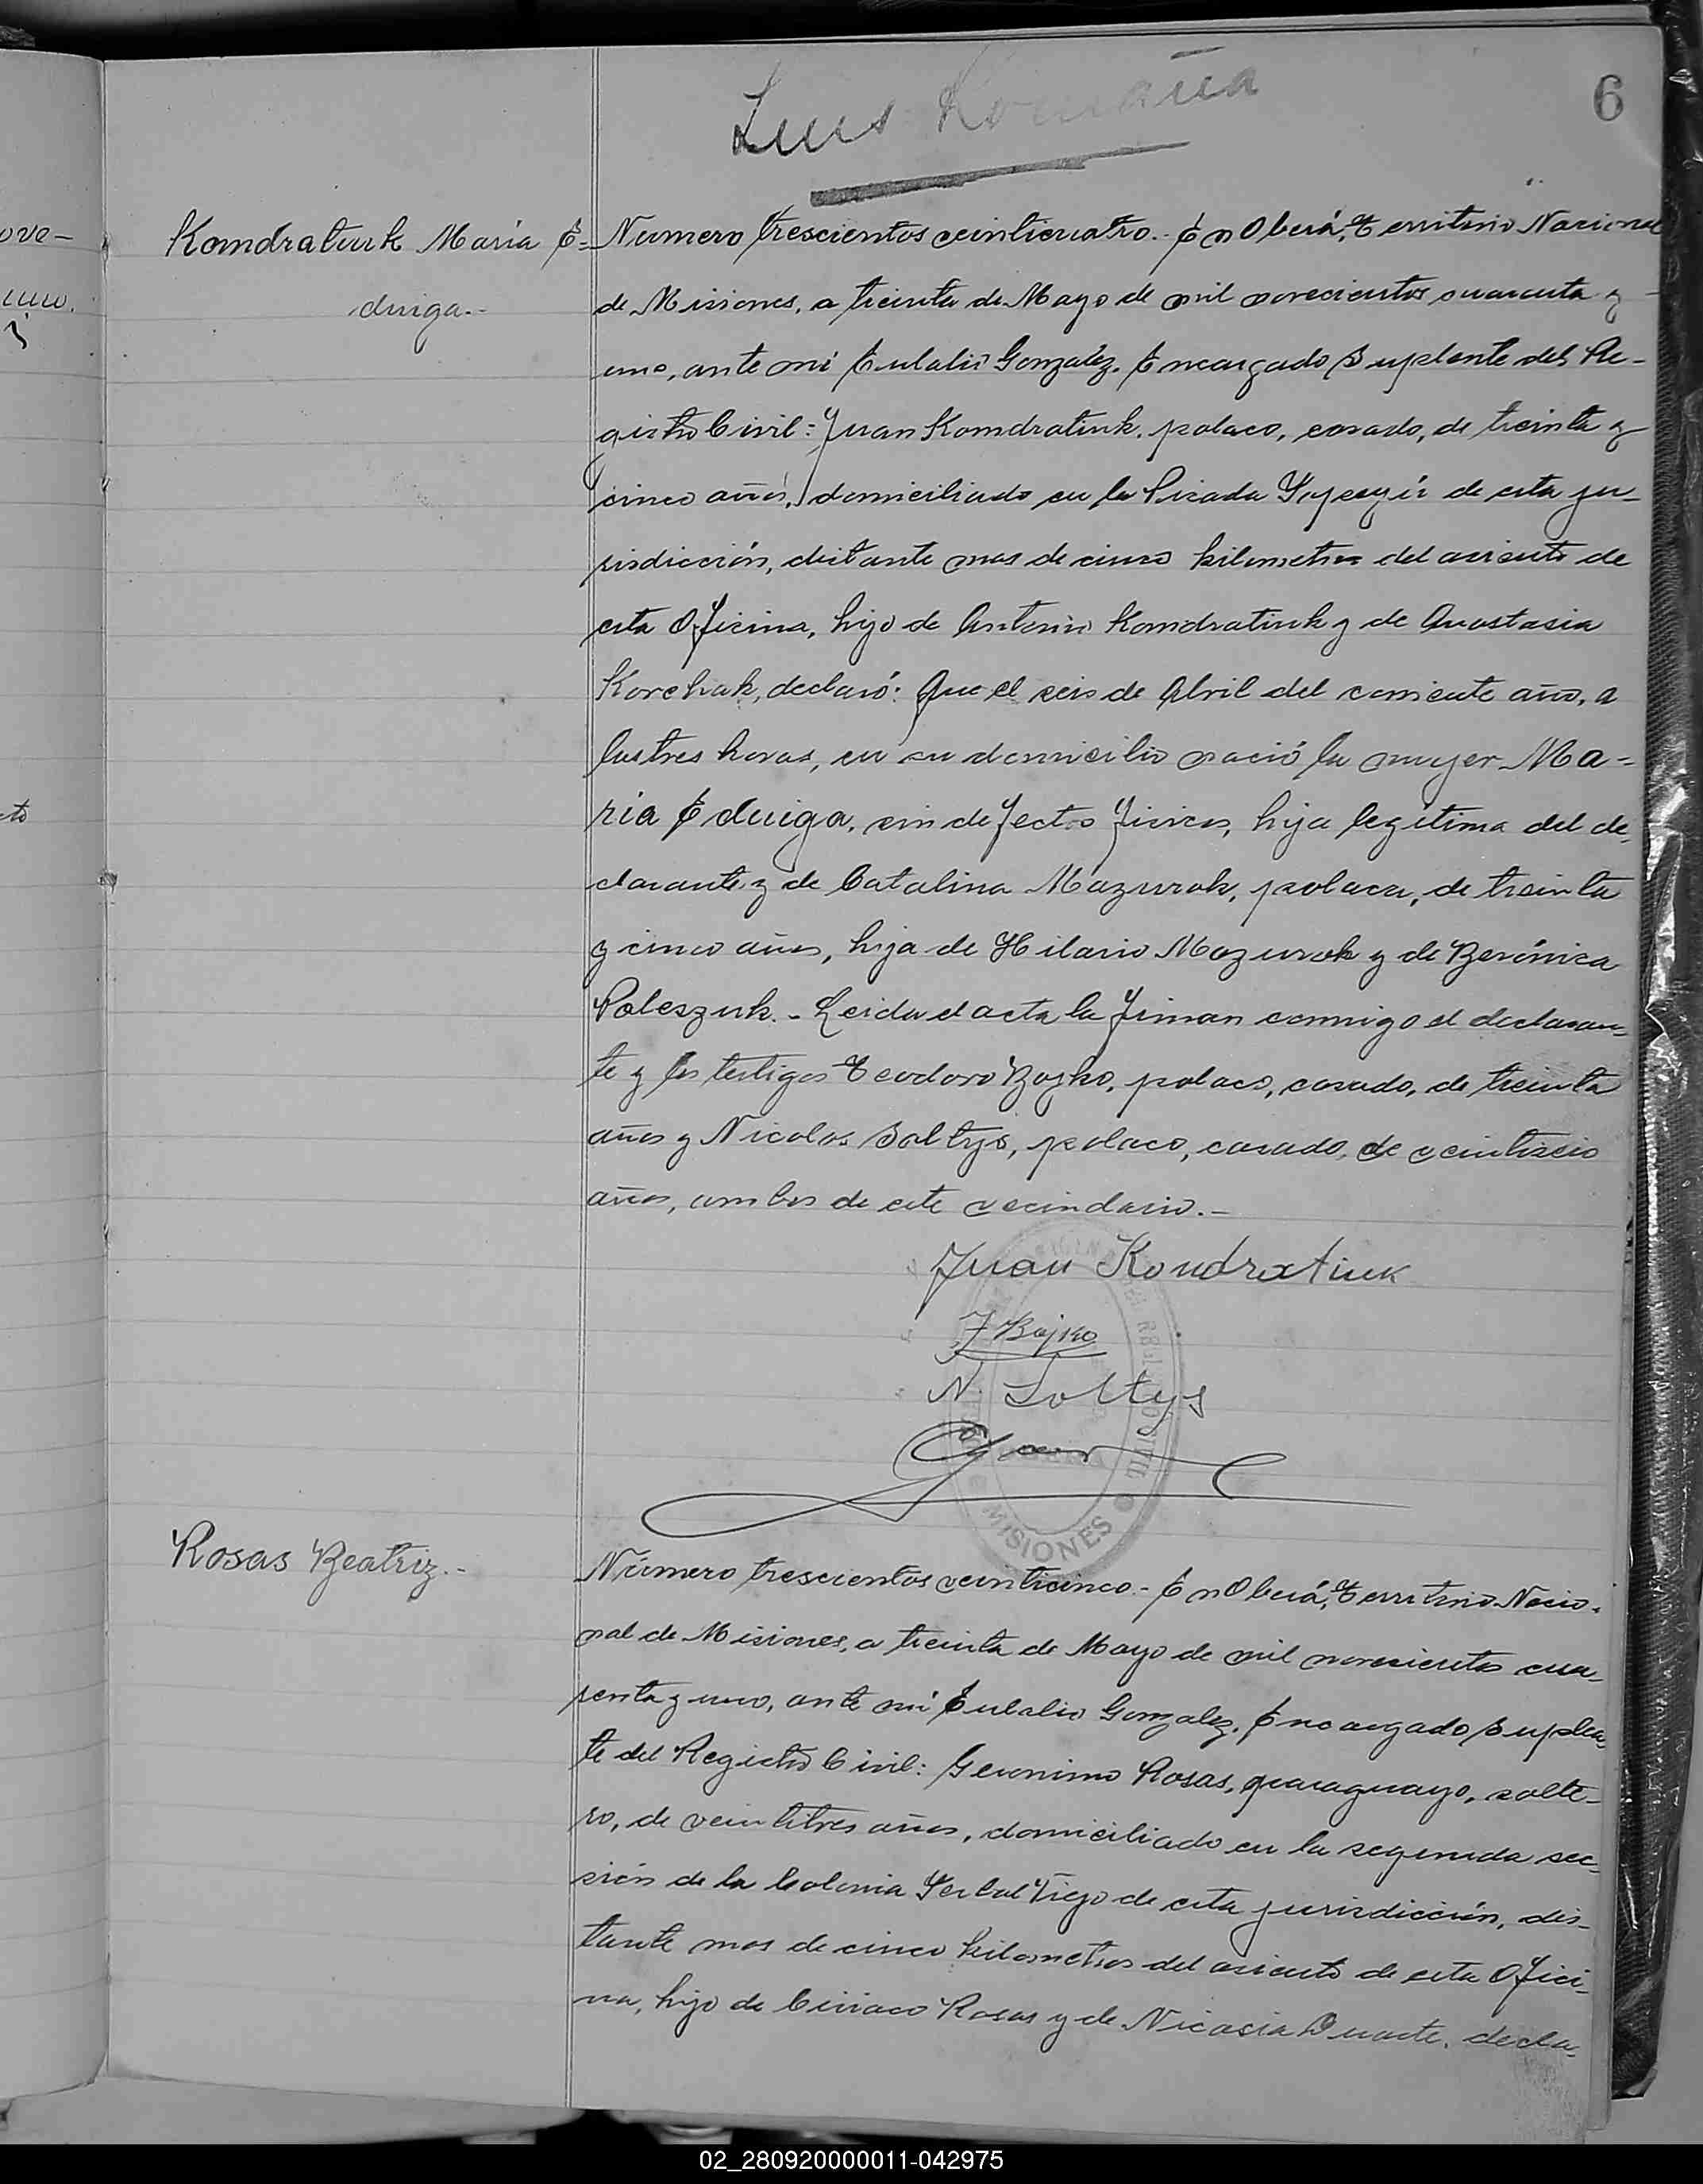 Luis Romaña
6
ove-
Komdratiuk María E-
duiga.-
Numero trescientos veinticuatro.- En Oberá, Territorio Nacional
de Misiones, a treinta de Mayo de mil novecientos cuarenta y
uno, ante mi Eulalio Gonzalez, Encargado Suplente del Re-
gistro Civil: Juan Komdratiuk, polaco, casado, de treinta y
cinco años, domiciliado en la Picada de esta ju-
risdicción, distante mas de cinco kilometros del asiento de
esta Oficina, hijo de Antonio Komdratiuk y de Anastasia
Korchak, declaró: Que el seis de Abril del corriente año, a
las tres horas, en su domicilio nació la mujer Ma-
ria Eduiga, sin defectos fisicos, hija legítima del de-
clarante y de Catalina Mazurok, polaca, de treinta
y cinco años, hija de Hilario Mazurok y de Berónica
Poleszuk.- Leida el acta la firman conmigo el declaran-
te y los testigos Teodoro Bojko, polaco, casado, de treinta
años y Nicolas Soltys, polaco, casado, de veintiseis
años, ambos de este vecindario.-
Juan Kondratiuk
Bojko
N. Soltys
MISIONES
Rosas Beatriz.-
Número trescientos veinticinco.- En Oberá, Territorio Nacio-
nal de Misiones, a treinta de Mayo de mil novecientos cua-
renta y uno, ante mi Eulalio Gonzalez, Encargado Suplen-
te del Registro Civil: Geronimo Rosas, paraguayo, solte-
ro, de veintitres años, domiciliado en la segunda sec-
ción de la Colonia Yerbal Viejo de esta jurisdicción, dis-
tante mas de cinco kilometros del asiento de esta Ofici-
na, hijo de Ciriaco Rosas y de Nicasia Duarte, decla-
02_280920000011-042975